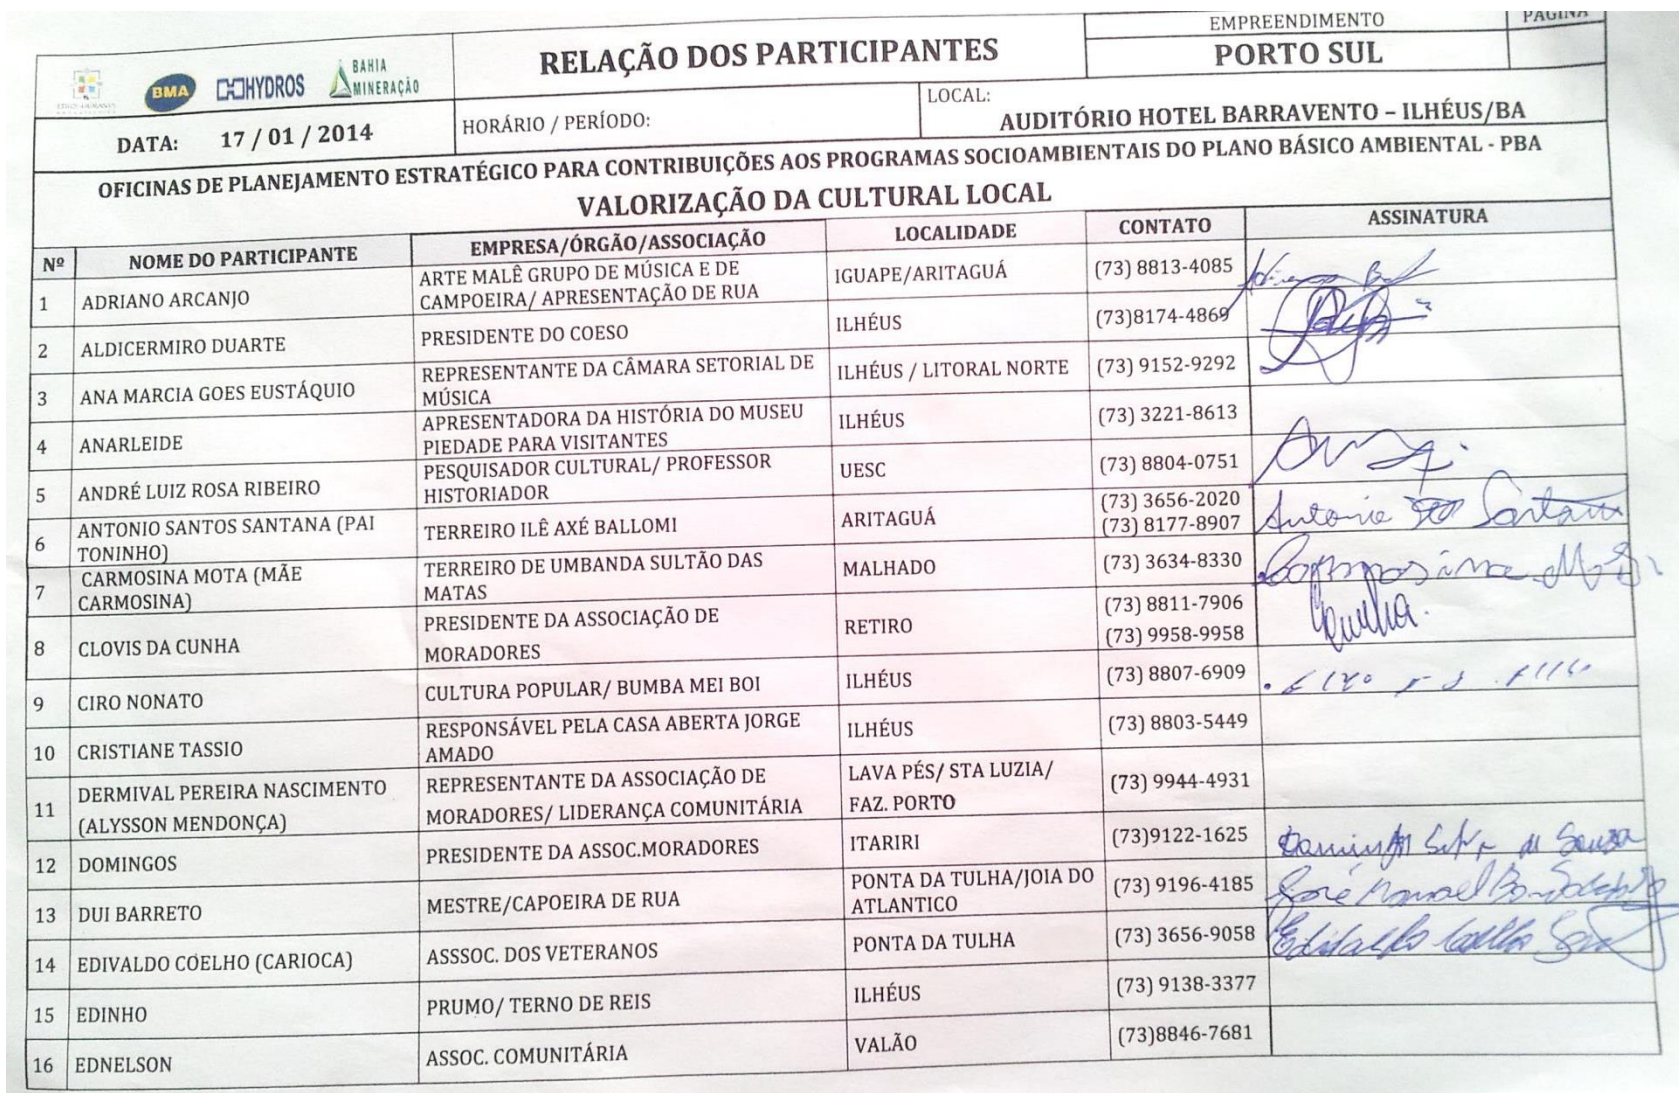 EMPREENDIMENTO
PÁGINA
BMA
HYDROS
BAHIA
MINERAÇÃO
RELAÇÃO DOS PARTICIPANTES
PORTO SUL
DATA: 17 / 01 / 2014
HORÁRIO / PERÍODO:
LOCAL:
AUDITÓRIO HOTEL BARRAVENTO – ILHÉUS/BA
OFICINAS DE PLANEJAMENTO ESTRATÉGICO PARA CONTRIBUIÇÕES AOS PROGRAMAS SOCIOAMBIENTAIS DO PLANO BÁSICO AMBIENTAL - PBA
VALORIZAÇÃO DA CULTURAL LOCAL
Nº NOME DO PARTICIPANTE EMPRESA/ÓRGÃO/ASSOCIAÇÃO LOCALIDADE CONTATO ASSINATURA
1 ADRIANO ARCANJO ARTE MALÊ GRUPO DE MÚSICA E DE
CAMPOEIRA/ APRESENTAÇÃO DE RUA IGUAPE/ARITAGUÁ (73) 8813-4085
2 ALDICERMIRO DUARTE PRESIDENTE DO COESO ILHÉUS (73)8174-4869
3 ANA MARCIA GOES EUSTÁQUIO REPRESENTANTE DA CÂMARA SETORIAL DE
MÚSICA ILHÉUS / LITORAL NORTE (73) 9152-9292
4 ANARLEIDE APRESENTADORA DA HISTÓRIA DO MUSEU
PIEDADE PARA VISITANTES ILHÉUS (73) 3221-8613
5 ANDRÉ LUIZ ROSA RIBEIRO PESQUISADOR CULTURAL/ PROFESSOR
HISTORIADOR UESC (73) 8804-0751
6 ANTONIO SANTOS SANTANA (PAI
TONINHO) TERREIRO ILÊ AXÉ BALLOMI ARITAGUÁ (73) 3656-2020
(73) 8177-8907 Antonio Santana
7 CARMOSINA MOTA (MÃE
CARMOSINA) TERREIRO DE UMBANDA SULTÃO DAS
MATAS MALHADO (73) 3634-8330 Carmosina
8 CLOVIS DA CUNHA PRESIDENTE DA ASSOCIAÇÃO DE
MORADORES RETIRO (73) 8811-7906
(73) 9958-9958 Cunha.
9 CIRO NONATO CULTURA POPULAR/ BUMBA MEI BOI ILHÉUS (73) 8807-6909
10 CRISTIANE TASSIO RESPONSÁVEL PELA CASA ABERTA JORGE
AMADO ILHÉUS (73) 8803-5449
11 DERMIVAL PEREIRA NASCIMENTO
(ALYSSON MENDONÇA) REPRESENTANTE DA ASSOCIAÇÃO DE
MORADORES/ LIDERANÇA COMUNITÁRIA LAVA PÉS/ STA LUZIA/
FAZ. PORTO (73) 9944-4931
12 DOMINGOS PRESIDENTE DA ASSOC.MORADORES ITARIRI (73)9122-1625 de Souza
13 DUI BARRETO MESTRE/CAPOEIRA DE RUA PONTA DA TULHA/JOIA DO
ATLANTICO (73) 9196-4185 José Manoel
14 EDIVALDO COELHO (CARIOCA) ASSSOC. DOS VETERANOS PONTA DA TULHA (73) 3656-9058 Edivaldo Coelho
15 EDINHO PRUMO/ TERNO DE REIS ILHÉUS (73) 9138-3377
16 EDNELSON ASSOC. COMUNITÁRIA VALÃO (73)8846-7681